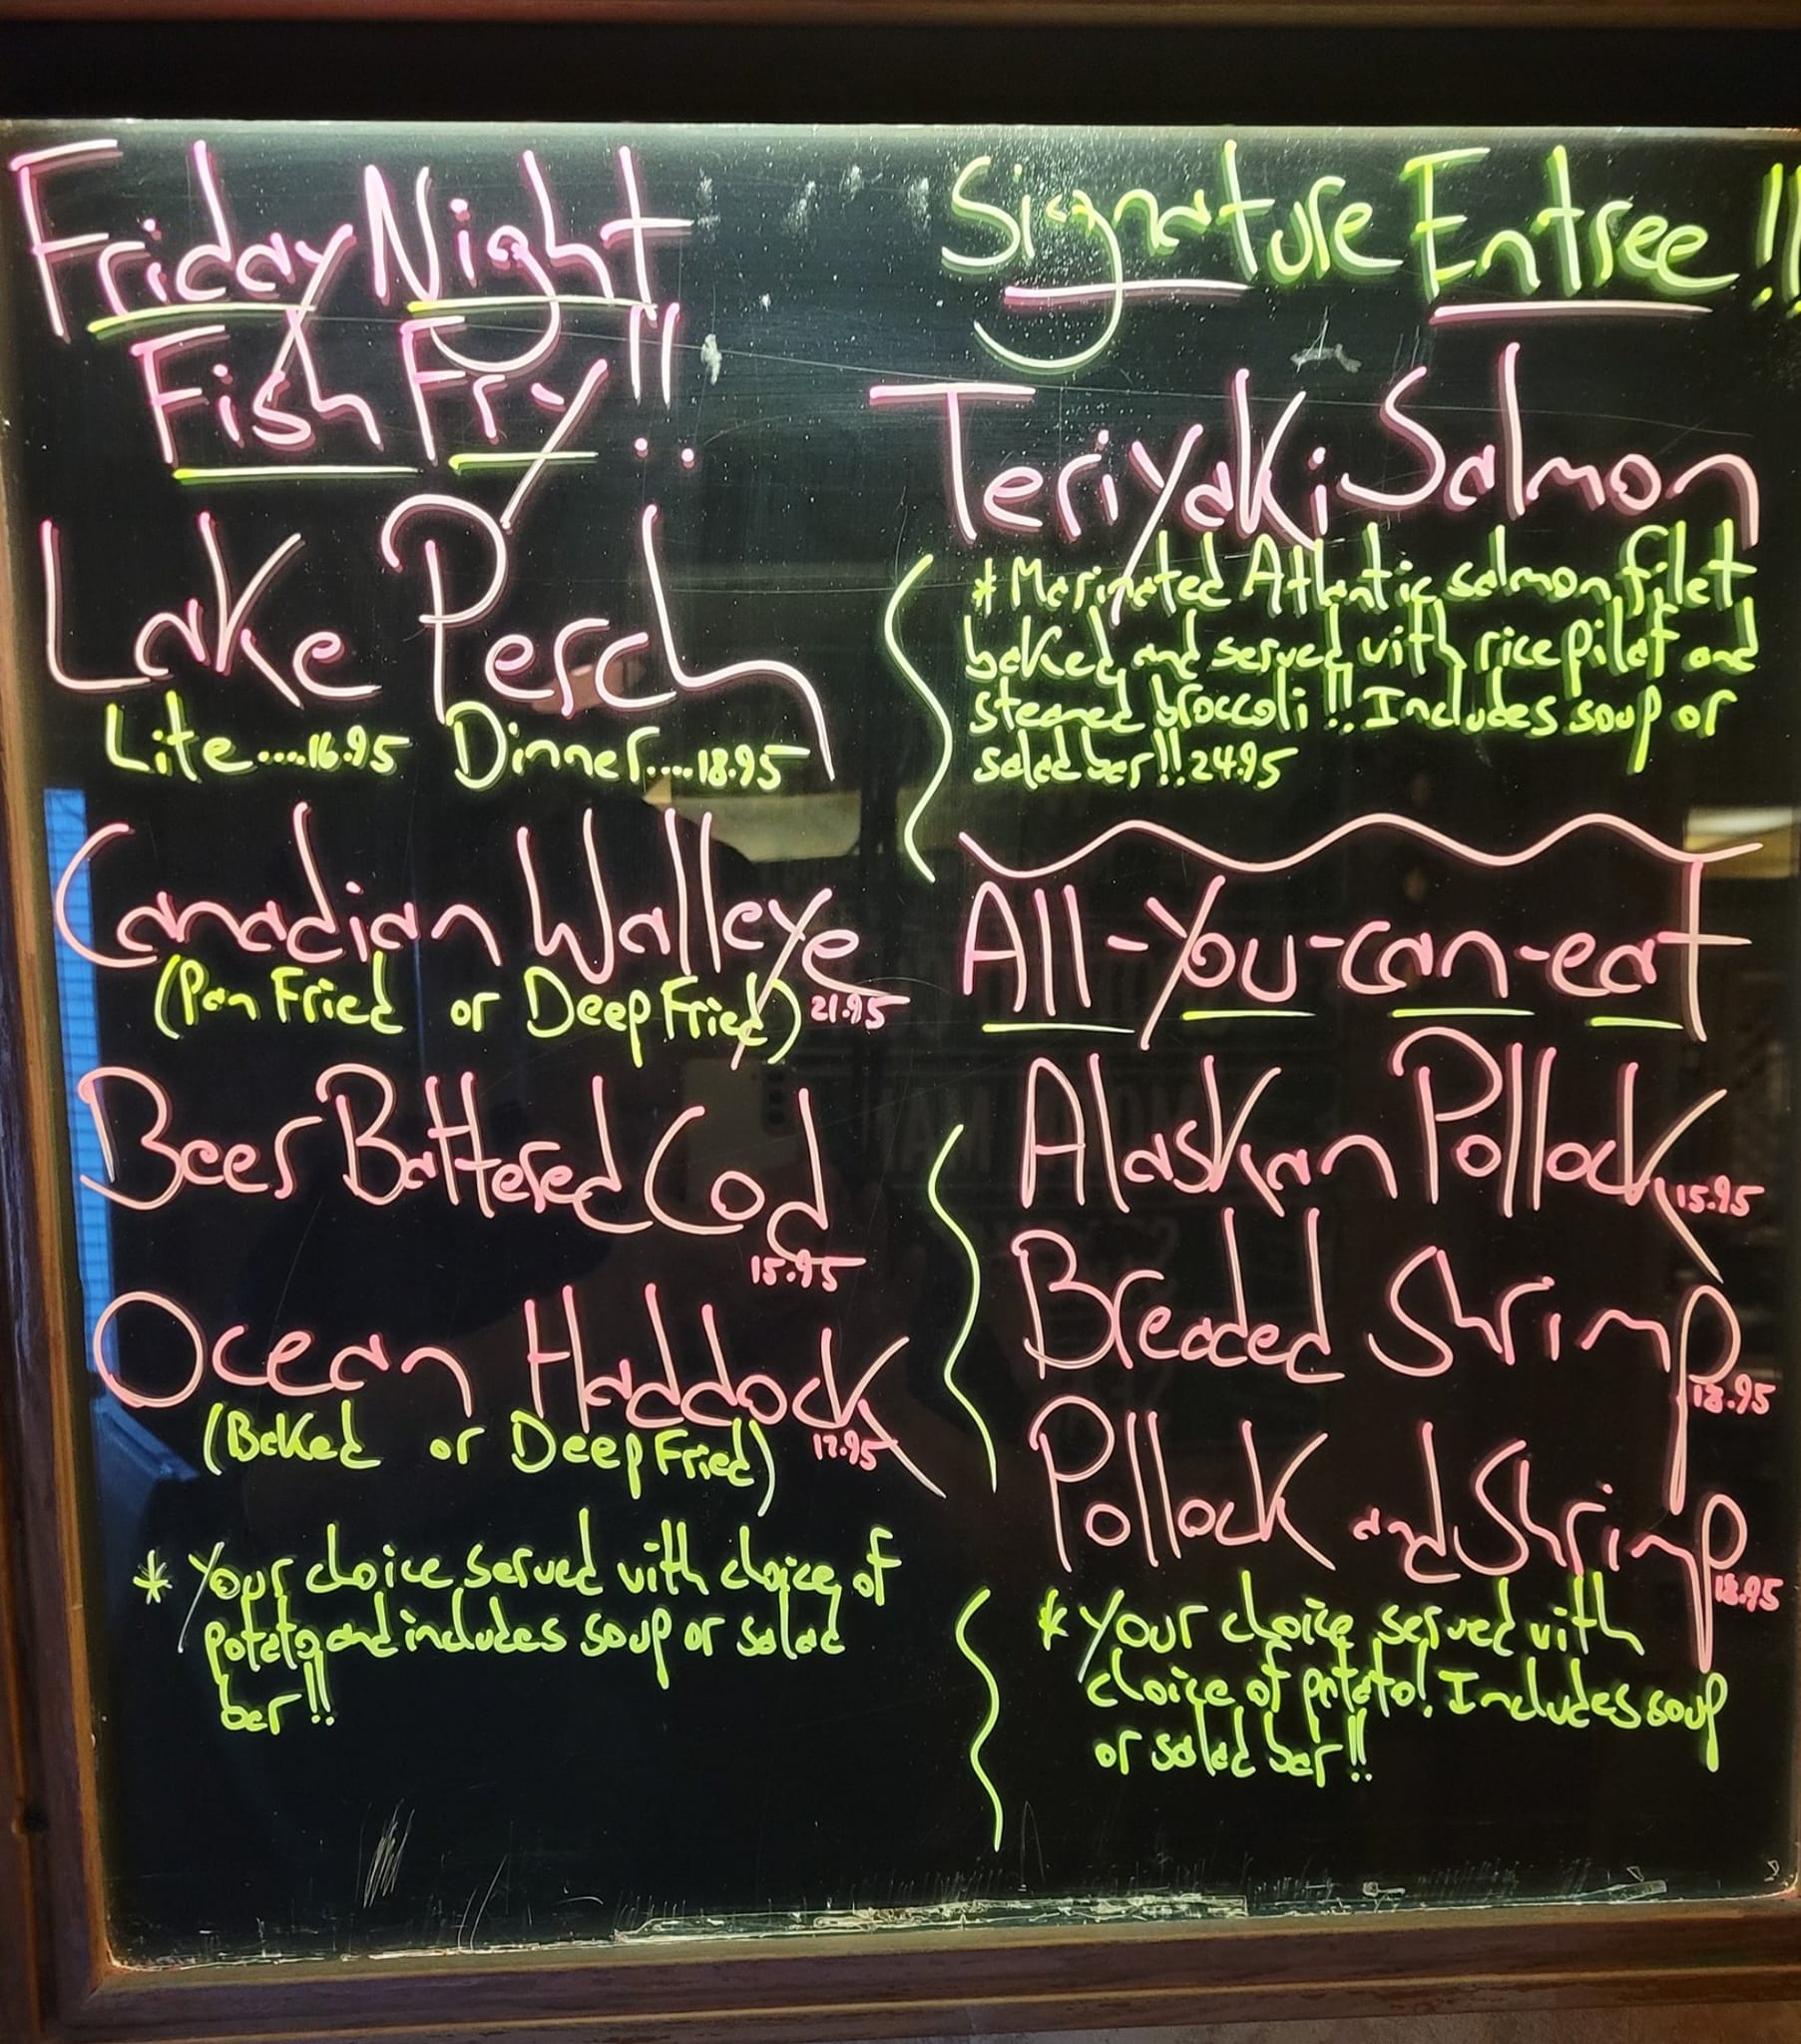 Friday Night
Fish Fry!!
Lake Perch
Lite....16.95 Dinner....18.95
Canadian Walleye
(Pan Fried or Deep Fried) 21.95
Beer Battered Cod
15.95
Ocean Haddock
(Baked or Deep Fried) 17.95
* Your choice served with choice of
potato and includes soup or salad
bar!!
Signature Entree!!
Teriyaki Salmon
* Marinated Atlantic salmon filet
baked and served with rice pilaf and
steamed broccoli!! Includes soup or
salad bar!! 24.95
All-You-can-eat
Alaskan Pollock
15.95
Breaded Shrimp
18.95
Pollock and Shrimp
18.95
* Your choice served with
choice of potato! Includes soup
or salad bar!!